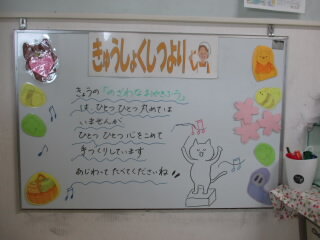 きゅうしょくしつより
きょうの「のざわなおやきふう」
は ひとつひとつ丸めては
いませんが
ひとつひとつ心をこめて
手づくりしています
あじわって たべてくださいね!!